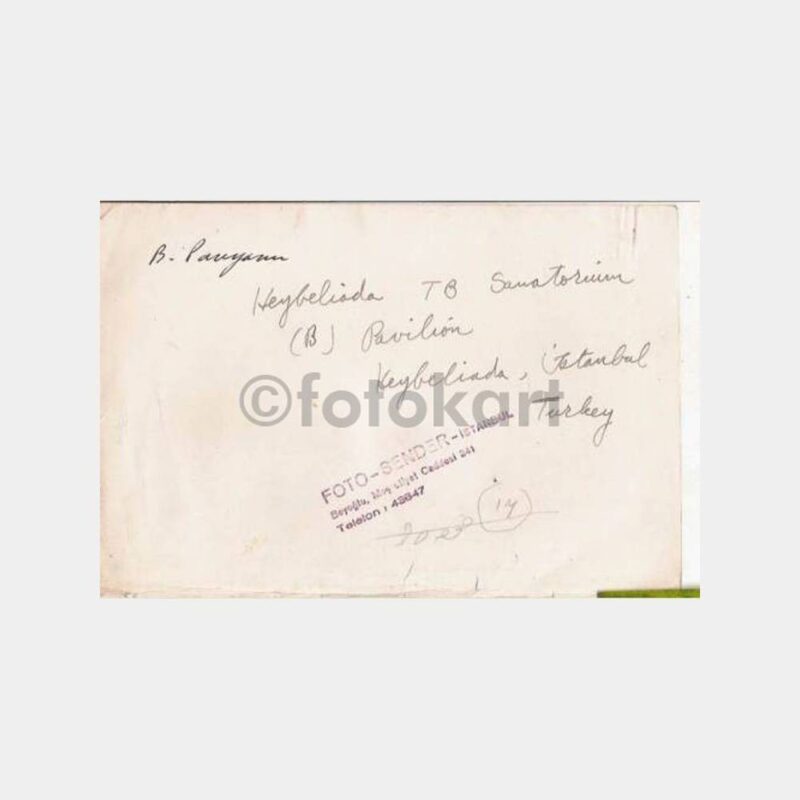 B. Pavyonu
Heybeliada TB Sanatorium
(B) Pavilion
Heybeliada, İstanbul
Turkey
©fotokart
FOTO-SENDER-İSTANBUL
Beyoğlu, Meşrutiyet Caddesi 241
Telefon : 43847
(14)